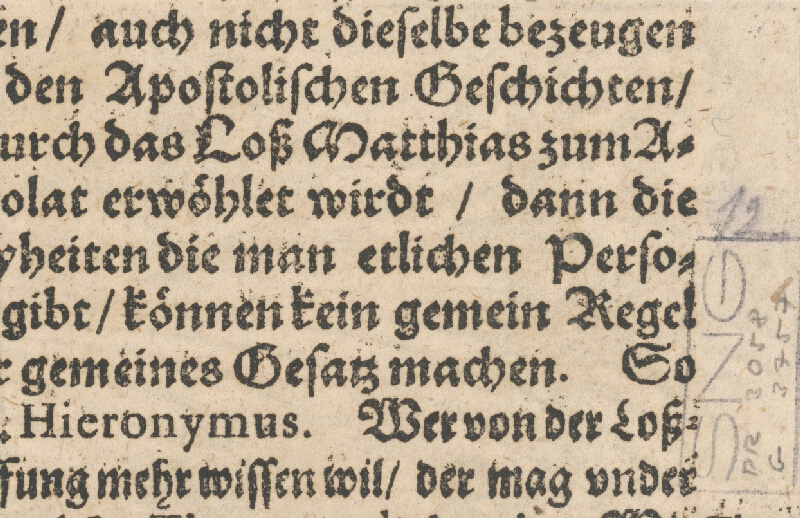 en / auch nicht dieselbe bezeugen
den Apostolischen Geschichten /
urch das Loß Matthias zum A⸗
olat erwöhlet wirdt / dann die
yheiten die man etlichen Perso⸗
gibt / können kein gemein Regel
r gemeines Gesatz machen. So
. Hieronymus. Wer von der Loß⸗
ffung mehr wissen wil / der mag vnder
12
SNG
DR 3057
G 3757